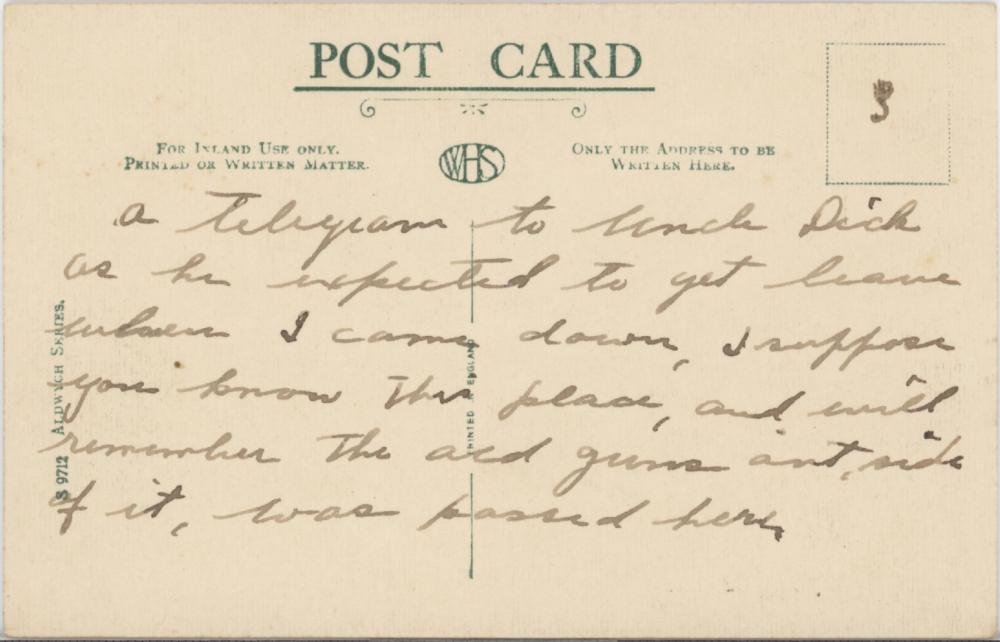 POST CARD
FOR INLAND USE ONLY.
PRINTED OR WRITTEN MATTER.
WHS
ONLY THE ADDRESS TO BE
WRITTEN HERE.
3
a telegram to Uncle Dick
as he expected to get leave
when I came down, I suppose
you know this place, and will
remember the old guns out side
of it, was passed here,
S 9712 ALDWYCH SERIES.
PRINTED IN ENGLAND